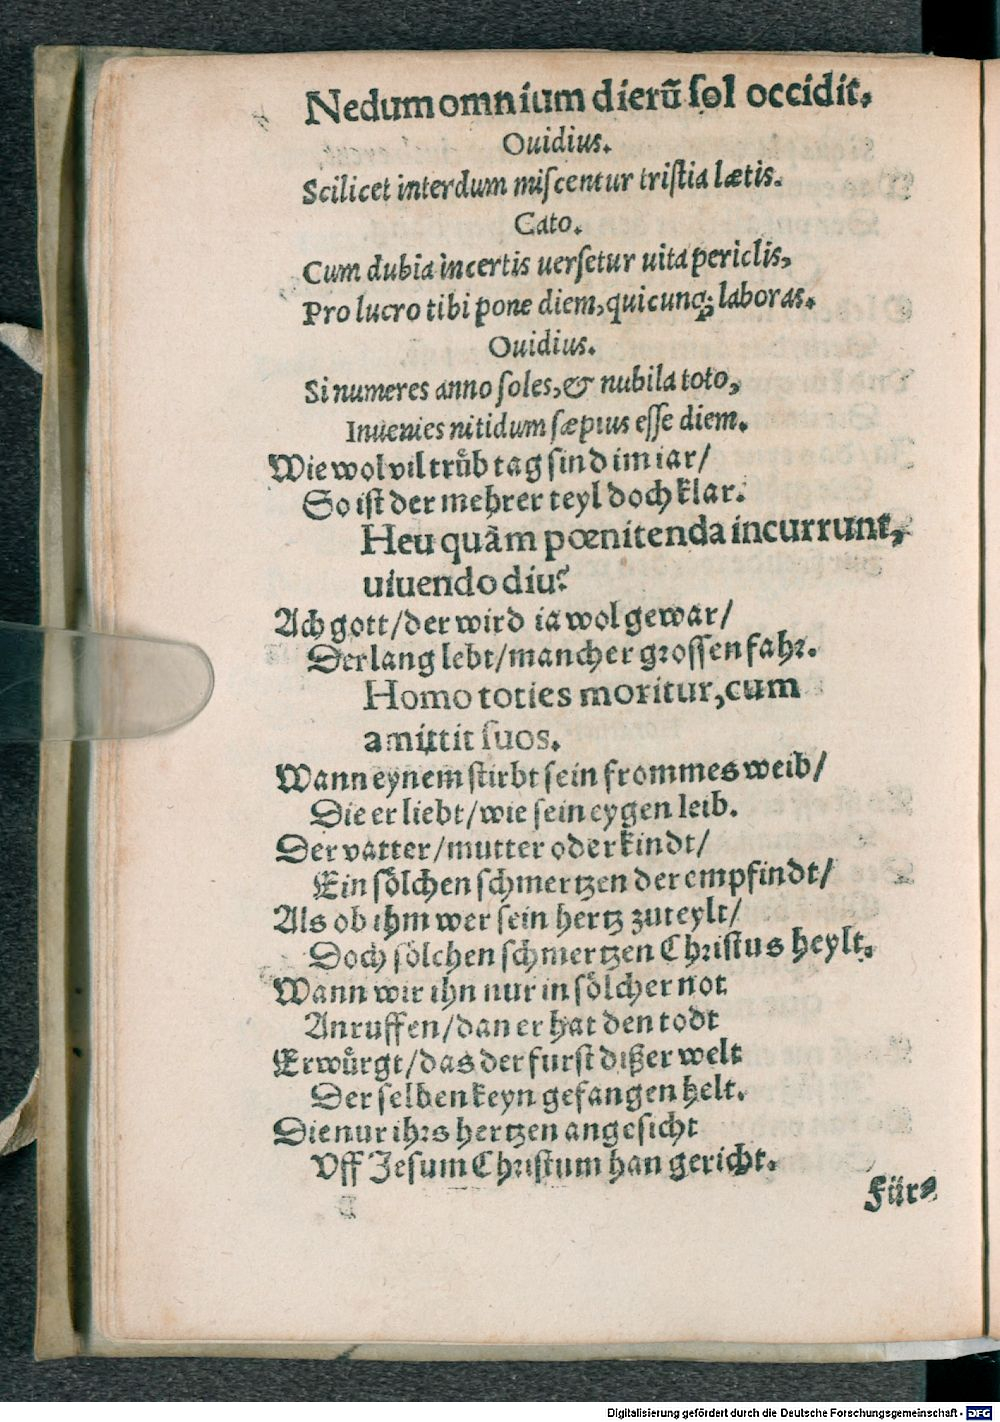 Nedum omnium dierũ sol occidit,
Ouidius.
Scilicet interdum miscentur tristia lætis.
Cato.
Cum dubia incertis uersetur uita periclis,
Pro lucro tibi pone diem, quicunq; laboras.
Ouidius.
Si numeres anno soles, & nubila toto,
Inuenies nitidum sæpius esse diem.
Wie wol vil truͤb tag sind im iar/
So ist der mehrer teyl doch klar.
Heu quàm pœnitenda incurrunt,
uiuendo diu?
Ach gott/ der wird ia wol gewar/
Der lang lebt/ mancher grossen fahr.
Homo toties moritur, cum
amittit suos.
Wann eynem stirbt sein frommes weib/
Die er liebt/ wie sein eygen leib.
Der vatter/ mutter oder kindt/
Ein soͤlchen schmertzen der empfindt/
Als ob ihm wer sein hertz zuteylt/
Doch soͤlchen schmertzen Christus heylt.
Wann wir ihn nur in soͤlcher not
Anruffen/ dan er hat den todt
Erwuͤrgt/ das der furst dißer welt
Der selben keyn gefangen helt.
Die nur ihrs hertzen angesicht
Vff Jesum Christum han gericht.
Für⸗
Digitalisierung gefördert durch die Deutsche Forschungsgemeinschaft - DFG